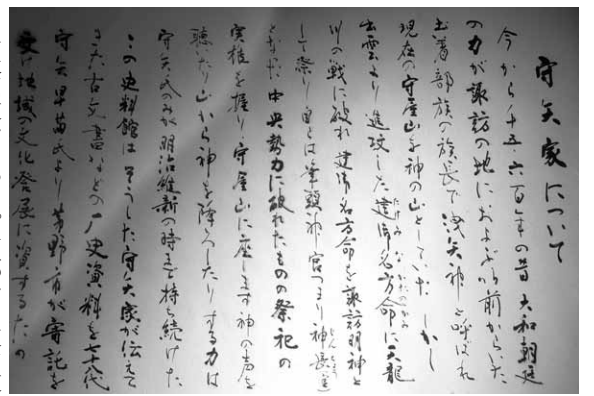 守矢家について
今から千五六百年の昔大和朝廷
の力が諏訪の地におよぶ以前からいた
土着部族の族長で洩矢神と呼ばれ
現在の守屋山を神の山としていたしかし
出雲より進攻した建御名方命に天龍
川の戦に破れ建御名方命を諏訪明神と
して祭り自らは筆頭神官つまり神長官
となった中央勢力に破れたものの祭祀の
実権を握り守屋山に座します神の声を
聴いたり山から神を降ろしたりする力は
守矢氏のみが明治維新の時まで持ち続けた
この史料館はそうした守矢家が伝えて
きた古文書などの歴史資料を七十八代
守矢早苗氏より茅野市が寄託を
受け地域の文化発展に資するための